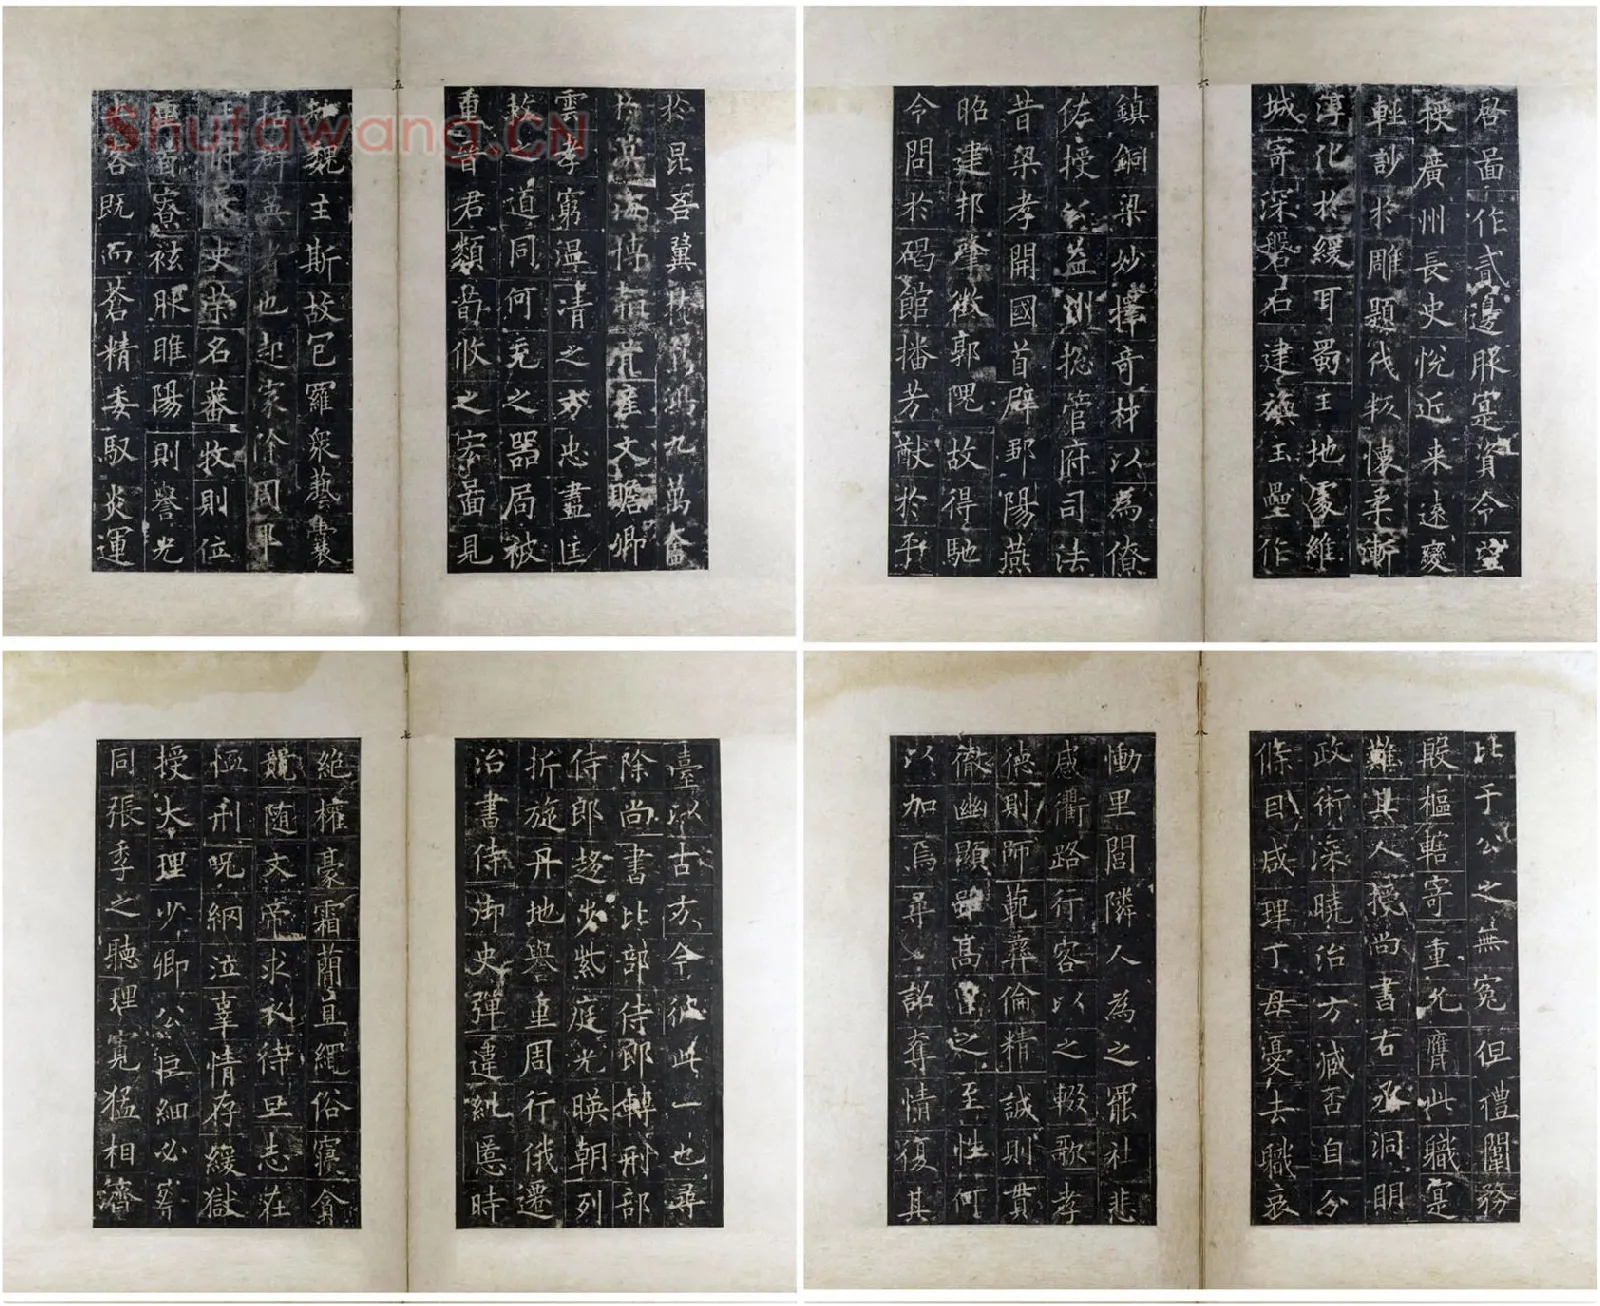 於昆吾翼九萬奮
於溟海博文贍卿
雲孝窮溫凊之方忠盡匡
救之道同何充之器局被
重晉君類荀攸之宏啚見
魏主斯故包羅衆藝
群英者也起家
史崇名蕃牧則位
寮袨服睢陽則譽光
客既而蒼精委馭炎運
啓啚作貳邊服寔資令望
授廣州長史悅近来遠變
輕訬於雕題伐叛懷柔漸
淳化於緩耳蜀王地處維
城寄深磐石建旟玉壘作
鎮銅梁妙擇奇材以為僚
佐授公益州揔管府司法
昔梁孝開國首辟鄒陽燕
昭建邦肇徵郭隗故得馳
令問於碣館播芳猷於平
臺以古方今彼此一也尋
除尚書比部侍郎轉刑部
侍郎趍步紫庭光暎朝列
折旋丹地譽重周行俄遷
治書侍御史彈違糺慝時
絕權豪霜簡直繩俗寢貪
競随文帝求衣待旦志在
恤刑呪網泣辜情存緩獄
授大理少卿公巨細必察
同張季之聽理寬猛相濟
比于公之無冤但禮闈務
殷樞轄寄重允膺此職寔
難其人授尚書右丞洞明
政術深曉治方臧否自分
條目咸理丁母憂去職哀
慟里閭隣人為之罷社悲
感衢路行客以之輟歌孝
德則師範彝倫精誠則貫
徹幽顯雖高曾之至性何
以加焉尋詔奪情復其
Shufawang.CN